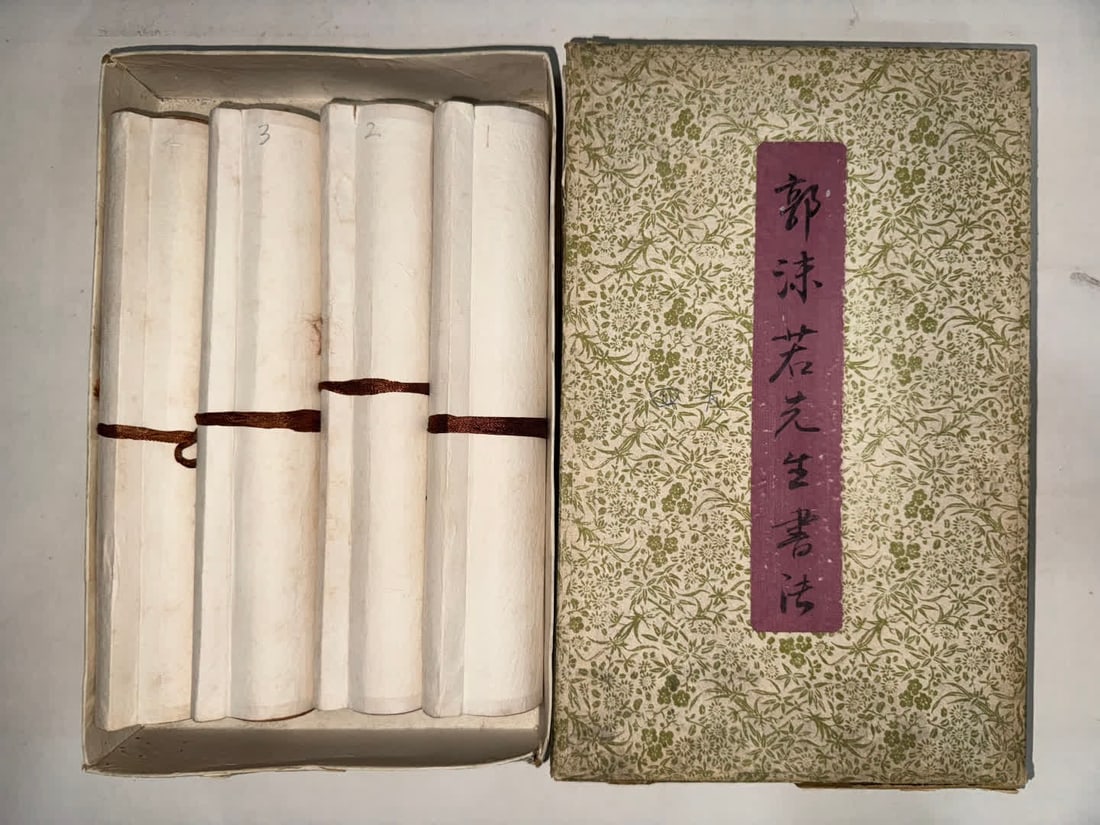 3
2
1
郭沫若先生書法